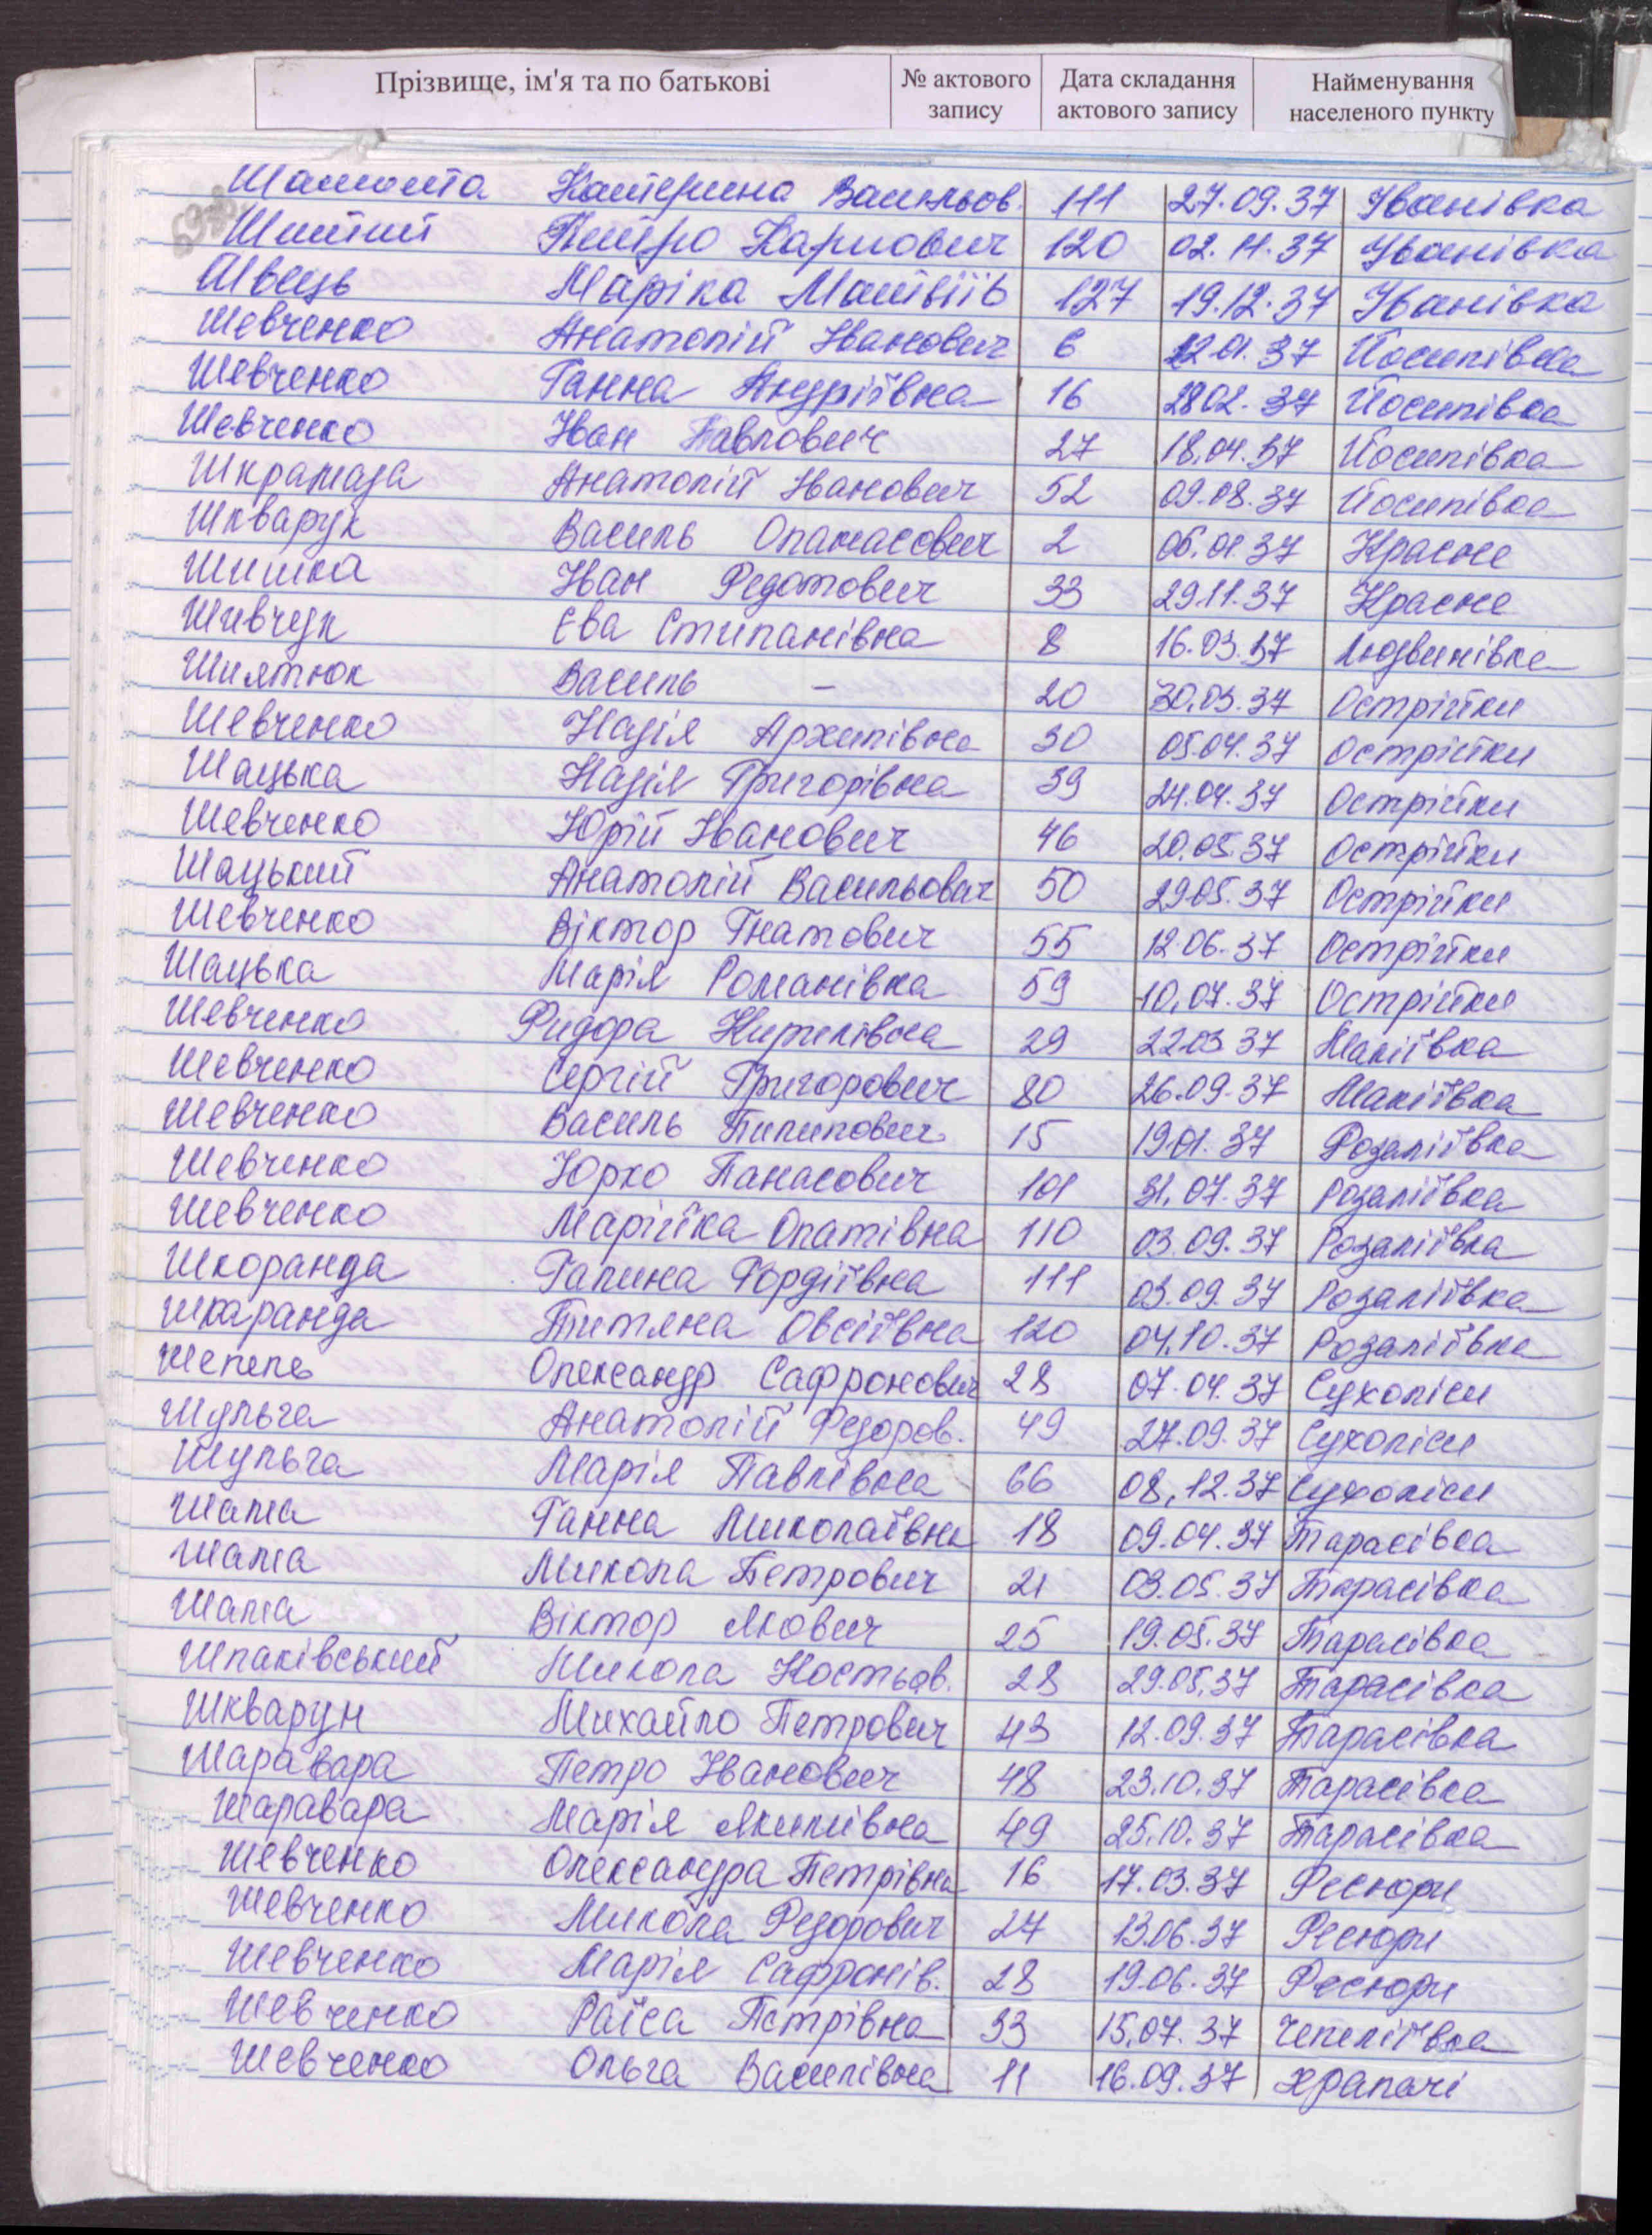 Прізвище, ім'я та по батькові № актового запису Дата складання актового запису Найменування населеного пункту
Катерина Васильов. 111 27.09.37 Іванівка
Петро Карпович 120 02.11.37 Іванівка
Швець Маріка 127 19.12.37 Іванівка
Шевченко Анатолій Іванович 6 12.01.37 Йосипівка
Шевченко Ганна Андріївна 16 28.02.37 Йосипівка
Шевченко Іван Павлович 27 18.04.37 Йосипівка
Шкрамада Анатолій Іванович 52 09.08.37 Йосипівка
Шкварук Василь Опанасович 2 06.01.37 Красне
Шишка Іван Федотович 33 29.11.37 Красне
Шивчук Єва Стипанівна 8 16.03.37 Людвинівка
Шиятюк Василь - 20 30.03.37 Острійки
Шевченко Надія Архипівна 30 05.04.37 Острійки
Шацька Надія Григорівна 39 24.04.37 Острійки
Шевченко Юрій Іванович 46 20.05.37 Острійки
Шацький Анатолій Васильович 50 29.05.37 Острійки
Шевченко Віктор Гнатович 55 12.06.37 Острійки
Шацька Марія Романівна 59 10.07.37 Острійки
Шевченко Фидора Кирилівна 29 22.03 37 Макіївка
Шевченко Сергій Григорович 80 26.09.37 Макіївка
Шевченко Василь Пилипович 15 19.01.37 Розаліївка
Шевченко Юрко Панасович 101 31.07.37 Розаліївка
Шевченко Марійка Опатівна 110 03.09.37 Розаліївка
Шкоранда Галина Гордіївна 111 03.09.37 Розаліївка
Шкаранда Титяна Овсіївна 120 04.10.37 Розаліївка
Шепель Олександр Сафронович 28 07.04.37 Сухоліси
Шульга Анатолій Федоров. 49 27.09.37 Сухоліси
Шульга Марія Павлівна 66 08.12.37 Сухоліси
Шама Ганна Миколаївна 18 09.04.37 Тарасівка
Шама Микола Петрович 21 03.05.37 Тарасівка
Шама Віктор Якович 25 19.05.37 Тарасівка
Шпаківський Микола Костьов. 28 29.05.37 Тарасівка
Шкварун Михайло Петрович 43 12.09.37 Тарасівка
Шаравара Петро Іванович 48 23.10.37 Тарасівка
Шаравара Марія Якимівна 49 25.10.37 Тарасівка
Шевченко Олександра Петрівна 16 17.03.37 Фесюри
Шевченко Микола Федорович 27 13.06.37 Фесюри
Шевченко Марія Сафронів. 28 19.06.37 Фесюри
Шевченко Раїса Петрівна 33 15.07.37 Чепеліївка
Шевченко Ольга Василівна 11 16.09.37 Храпачі